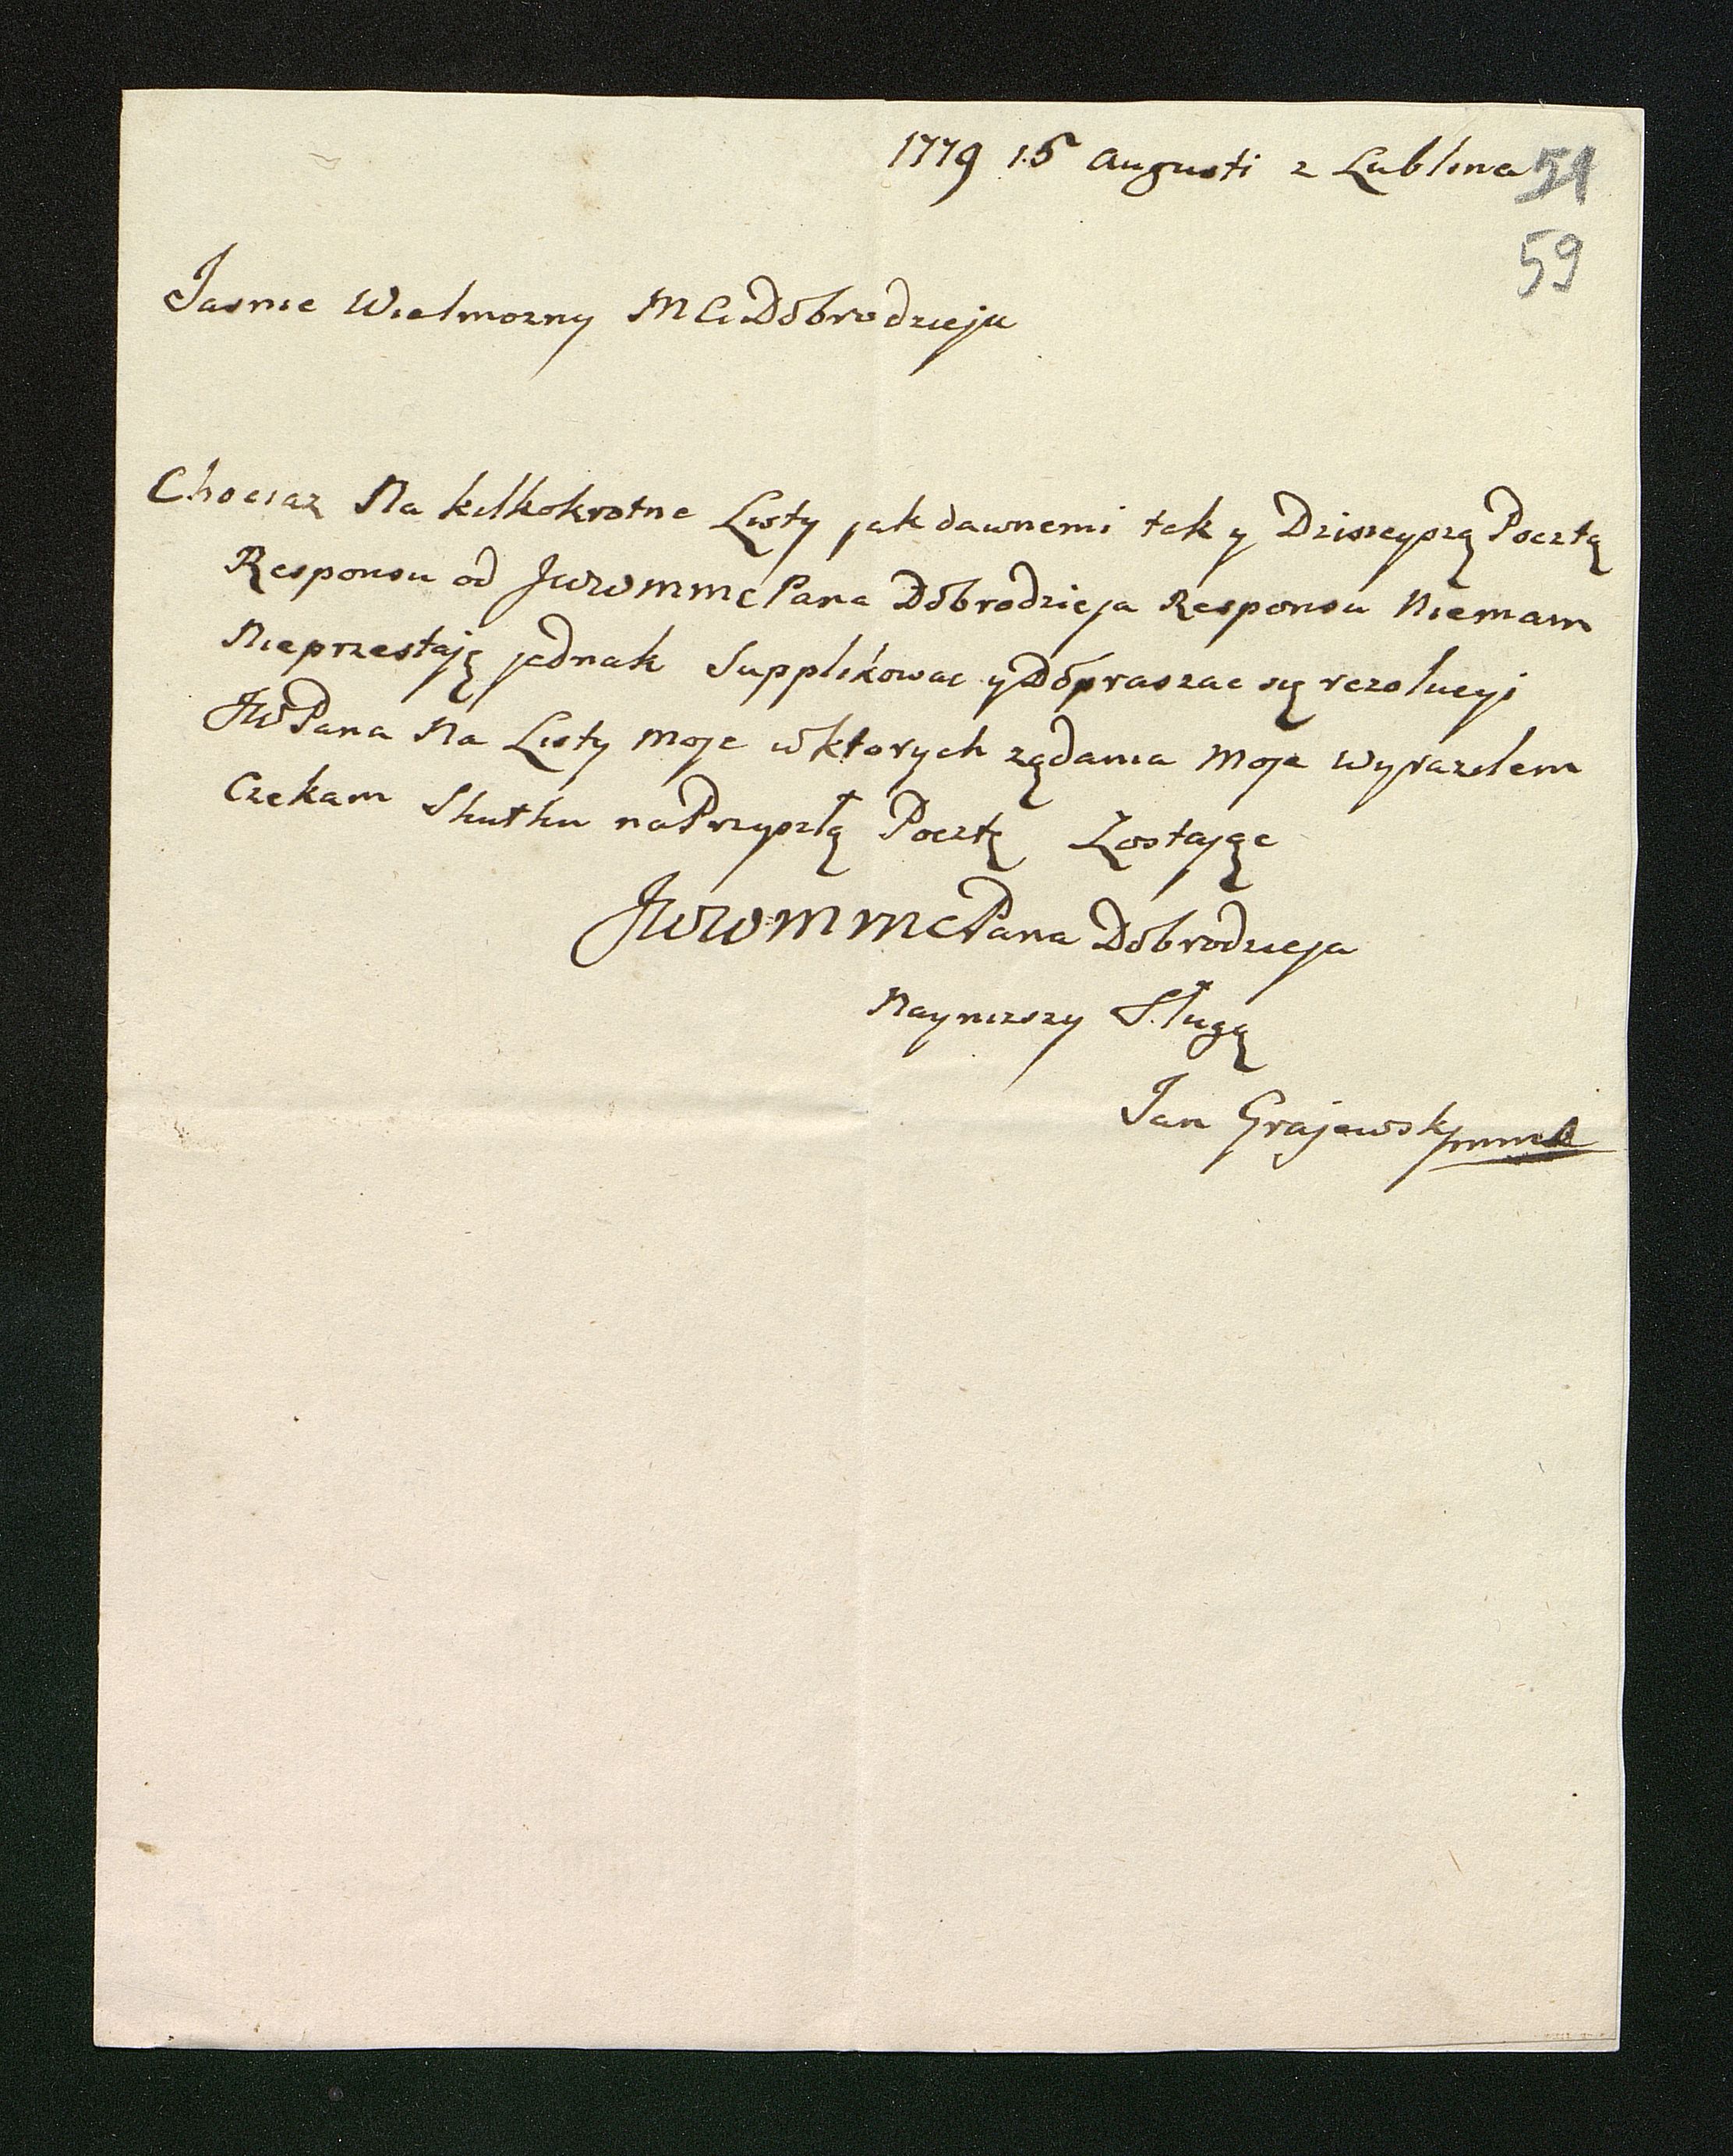 1779 15 Augusti z Lublina 51
59
Jasnie Wielmozny MCi Dobrodzieju
Chociaz Na kilkokrotne Listy jak dawnemi tak y Dzisieyszą Pocztą
Responsu od JWWMMC Pana Dobrodzieja Responsu Niemam
Nieprzestaję jednak Supplikowac y Dopraszac się rezolucyi
JW Pana Na Listy moje w ktorych ządania Moje wyraziłem
Czekam Skutku na Przyszłą Pocztę Zostając
JWWMMC Pana Dobrodzieja
Naynizszy Sługą
Jan Grajewski mmp